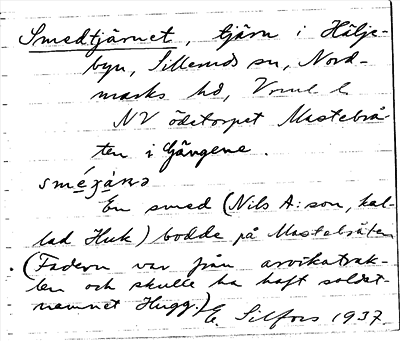 Smedtjärnet, tjärn i Hälje-
byn, Silleruds sn, Nord-
marks hd, Vrml l
NV ödetorpet Mastebrå-
ten i Gängene.
smé̀ʒàrə
En smed (Nils A:son, kal-
lad Huk) bodde på Mastebråten
(Fadern var från arvikatrak-
ten och skulle ha haft soldat-
namnet Hugg.)
E. Silfors 1937.